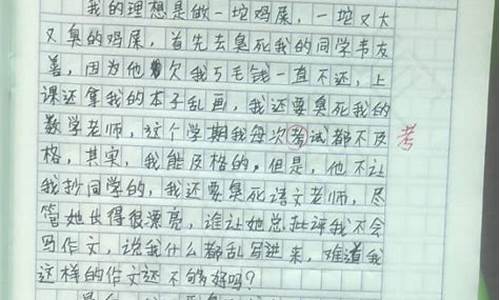 我的理想是做一坨鸡屎，一坨又大
又臭的鸡屎，首先去臭死我的同学韦友
善，因为他欠我5毛钱一直不还，上
课还拿我的本子乱画，我还要臭死我的
数学老师，这个学期我每次考试都不及 考
格，其实，我能及格的，但是，他不让
我抄同学的，我还要臭死语文老师，尽
管她长得很漂亮，谁让她总批评我不会
写作文，说我什么都乱写进来，难道我
这样的作文还不够好吗？